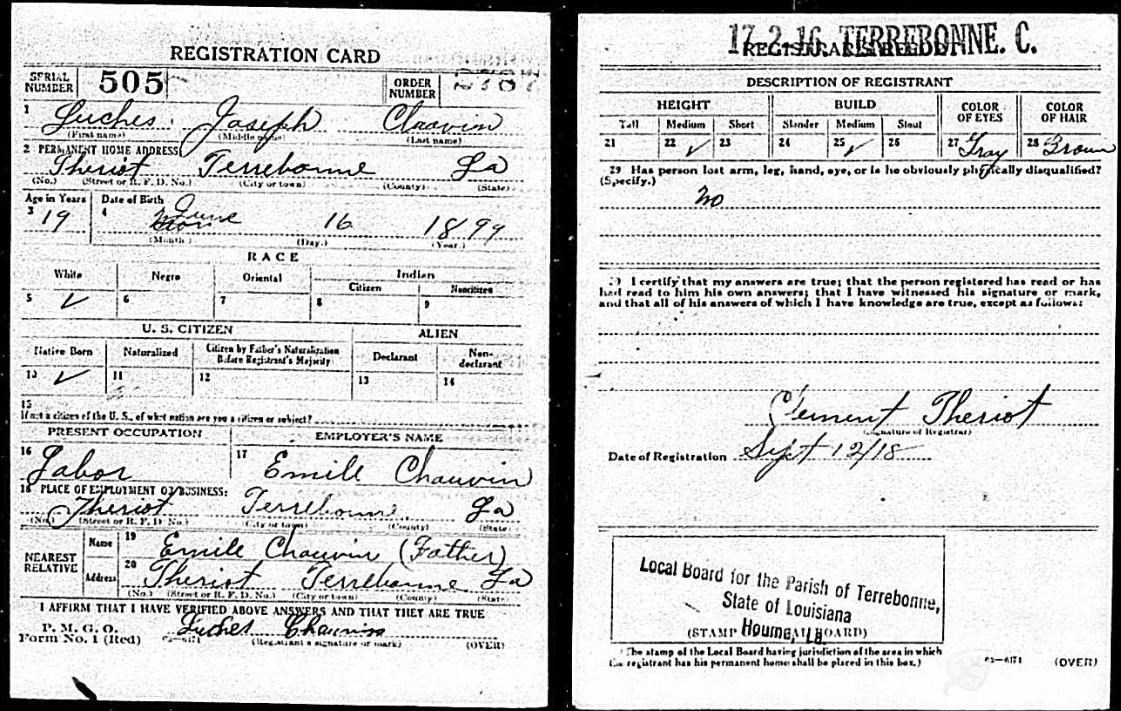 REGISTRATION CARD
SERIAL NUMBER 505 ORDER NUMBER
1 Luches Joseph Chauvin
(First name) (Middle name) (Last name)
2 PERMANENT HOME ADDRESS:
Theriot Terrebonne La
(No.) (Street or R. F. D. No.) (City or town) (County) (State)
Age in Years Date of Birth
3 19 4 June 16 1899
(Month) (Day.) (Year.)
RACE
White Negro Oriental Indian
Citizen Noncitizen
5 ✓ 6 7 8 9
U. S. CITIZEN ALIEN
Native Born Naturalized Citizen by Father's Naturalization Before Registrant's Majority Declarant Non-declarant
10 ✓ 11 12 13 14
15
If not a citizen of the U. S., of what nation are you a citizen or subject?
PRESENT OCCUPATION EMPLOYER'S NAME
16 Labor 17 Emile Chauvin
18 PLACE OF EMPLOYMENT OR BUSINESS:
Theriot Terrebonne La
(No.) (Street or R. F. D. No.) (City or town) (County) (State)
NEAREST RELATIVE Name 19 Emile Chauvin (Father)
Address 20 Theriot Terrebonne La
(No.) (Street or R. F. D. No.) (City or town) (County) (State)
I AFFIRM THAT I HAVE VERIFIED ABOVE ANSWERS AND THAT THEY ARE TRUE
P. M. G. O.
Form No. 1 (Red) Luches Chauvin
(Registrant's signature or mark) (OVER)
17-2-16 TERREBONNE. C.
REGISTRAR'S REPORT
DESCRIPTION OF REGISTRANT
HEIGHT BUILD COLOR OF EYES COLOR OF HAIR
Tall Medium Short Slender Medium Stout
21 22 ✓ 23 24 25 ✓ 26 27 Gray 28 Brown
29 Has person lost arm, leg, hand, eye, or is he obviously physically disqualified?
(Specify.)
No
30 I certify that my answers are true; that the person registered has read or has
had read to him his own answers; that I have witnessed his signature or mark,
and that all of his answers of which I have knowledge are true, except as follows:
Clement Theriot
(Signature of Registrar)
Date of Registration Sept 12/18
Local Board for the Parish of Terrebonne,
State of Louisiana
Houma, La.
(STAMP OF LOCAL BOARD)
(The stamp of the Local Board having jurisdiction of the area in which
the registrant has his permanent home shall be placed in this box.)
03—6171 (OVER)